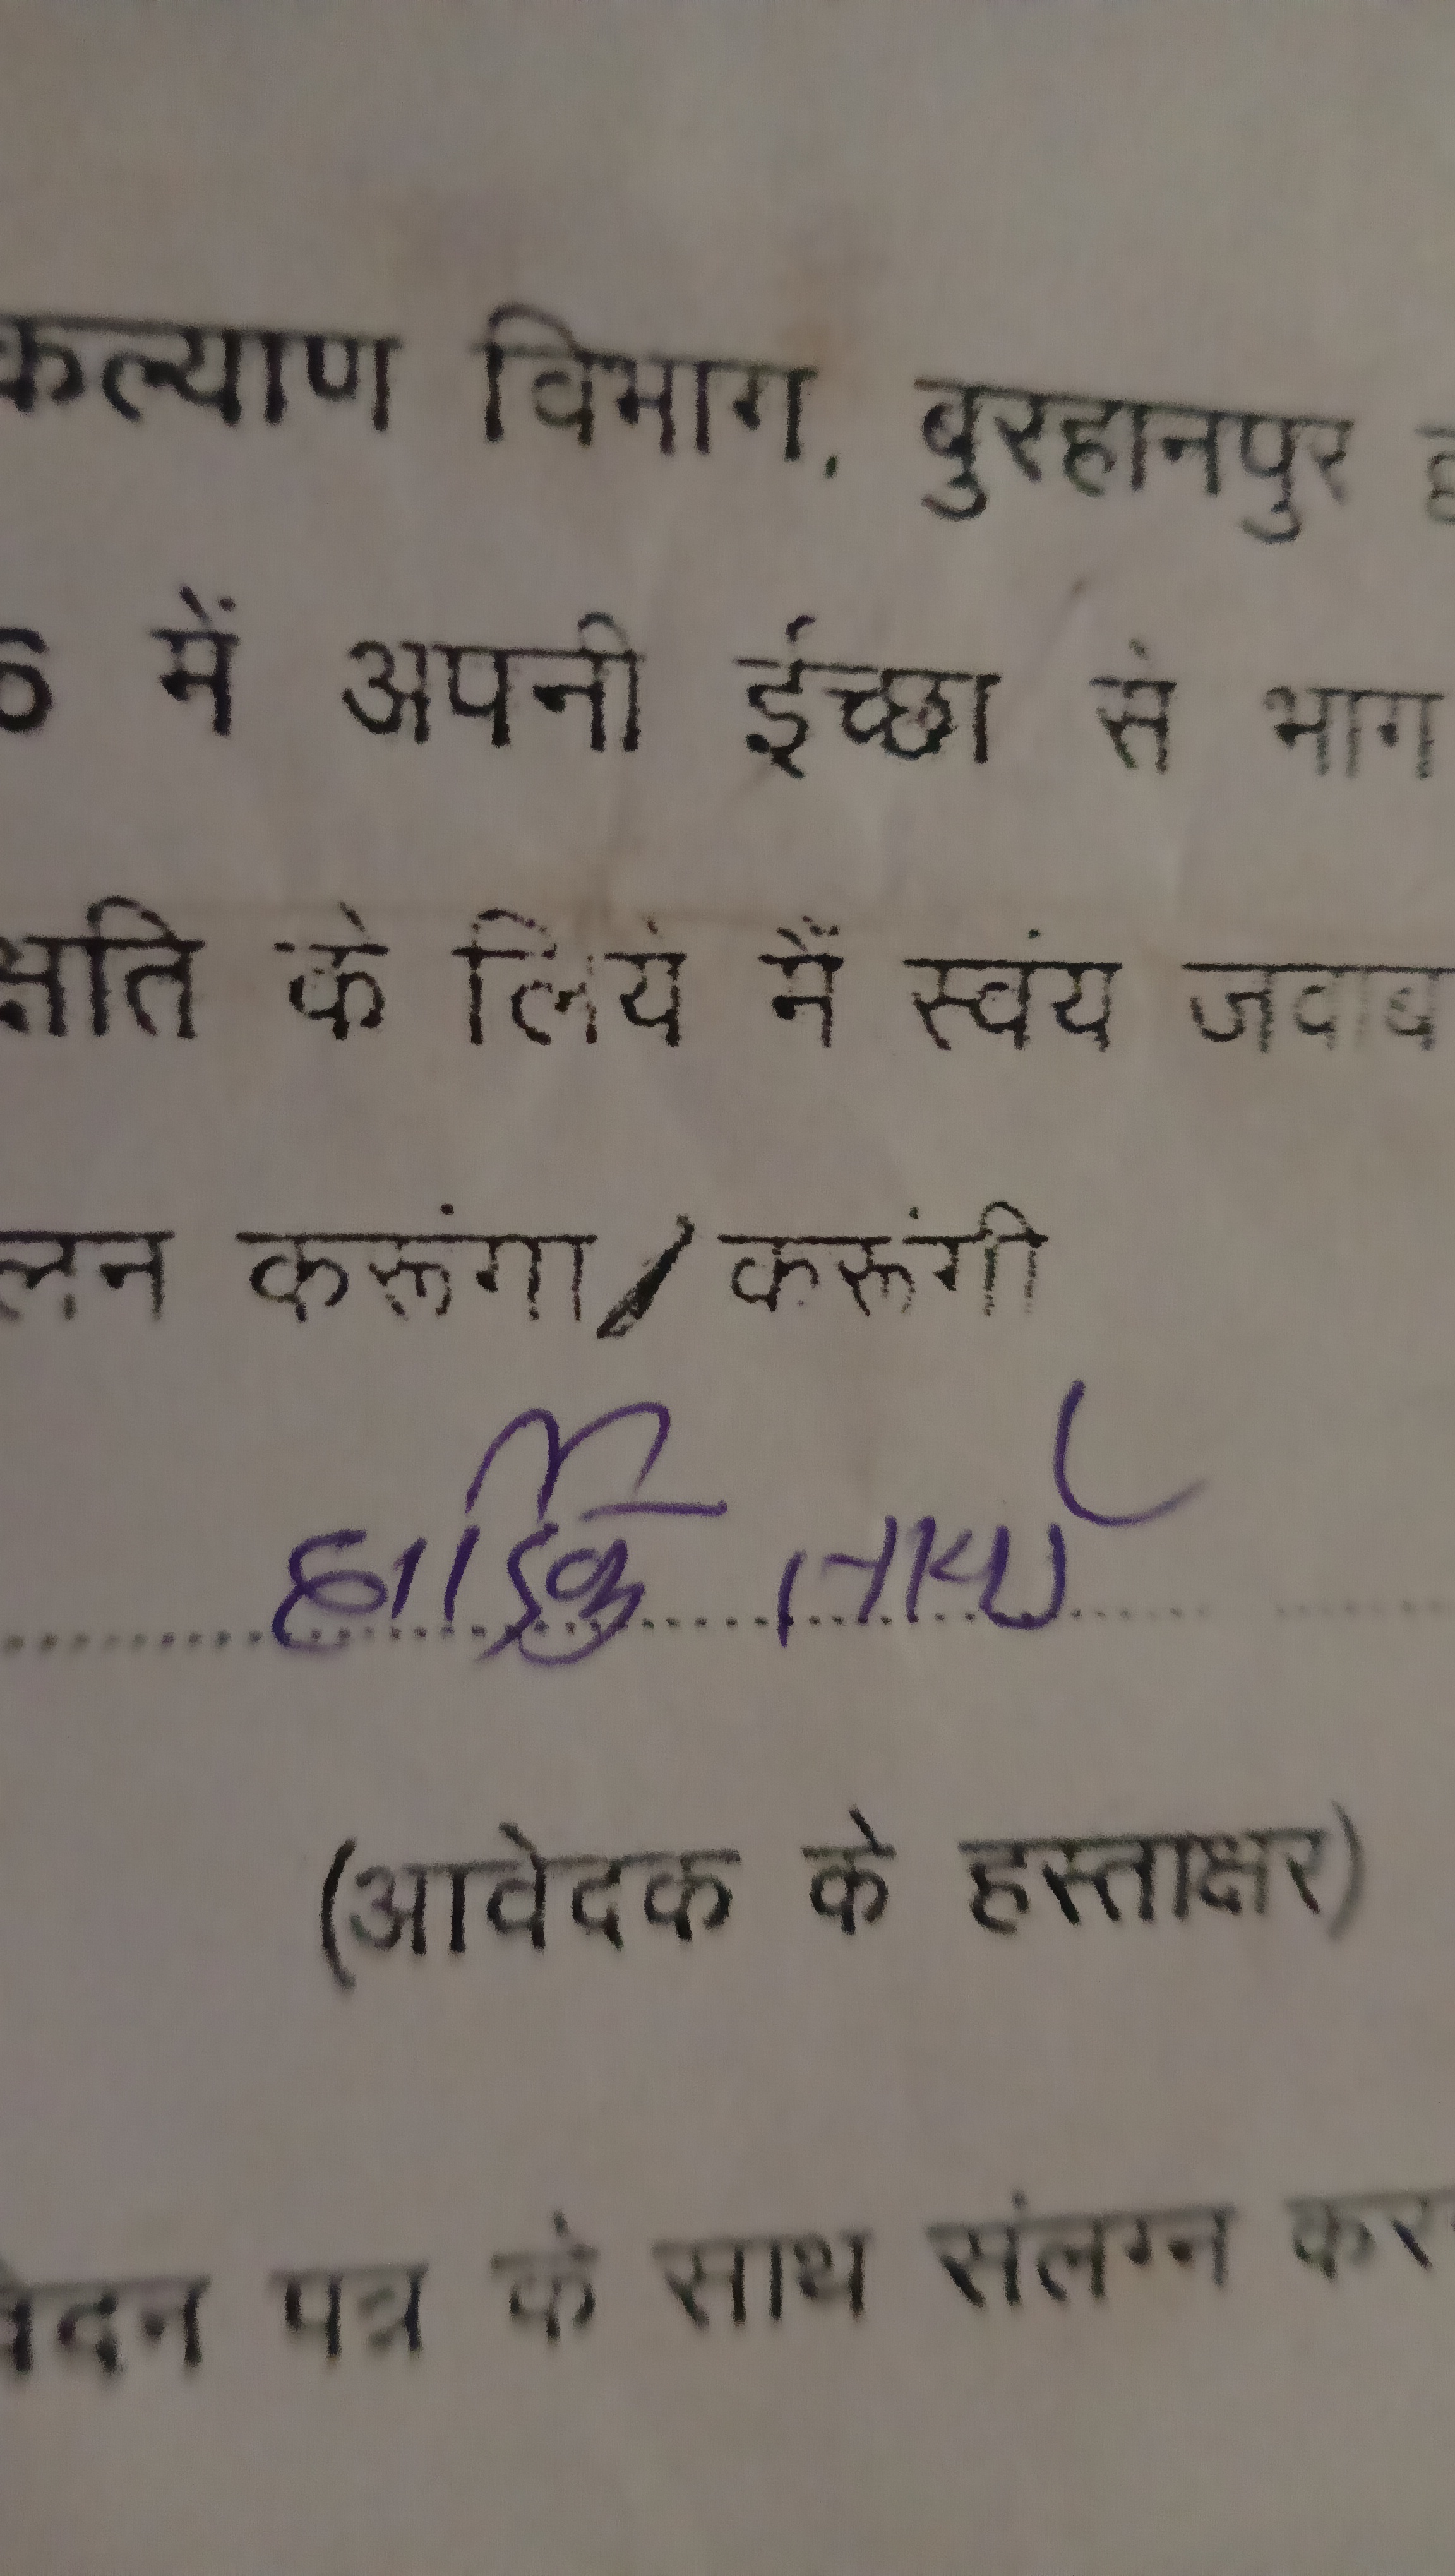 कल्याण विभाग, बुरहानपुर
में अपनी ईच्छा से भाग
क्षति के लिये मैं स्वंय जवाब
लन करूंगा/करूंगी
हार्दिक
(आवेदक के हस्ताक्षर)
वेदन पत्र के साथ संलग्न कर